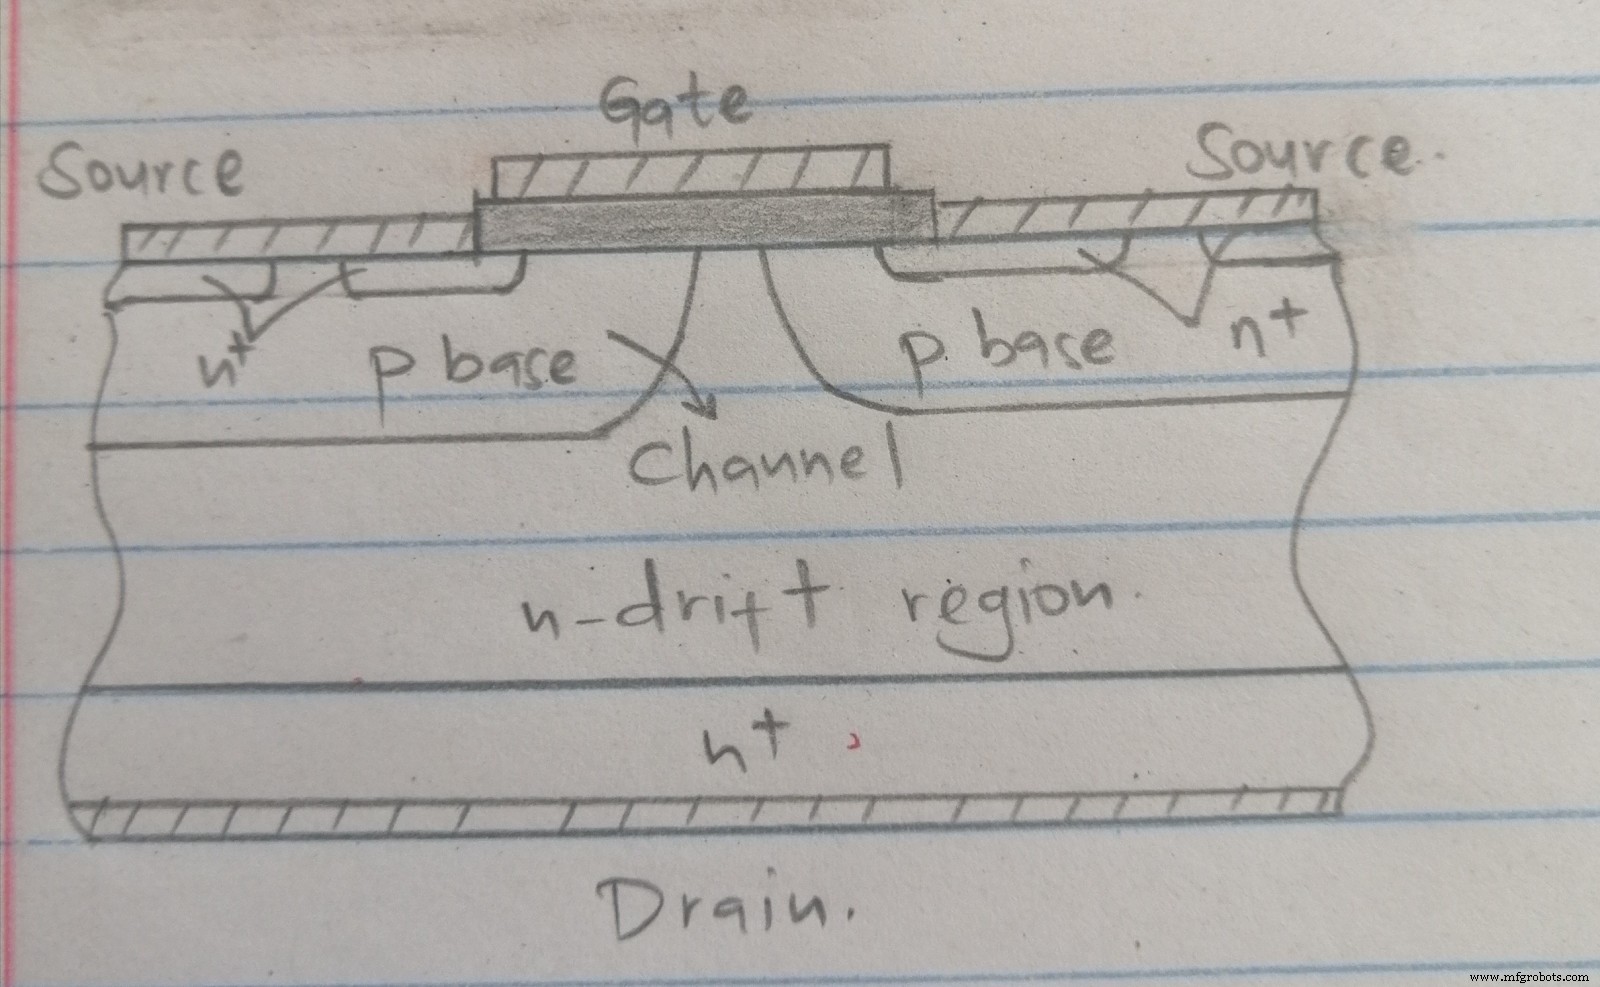 Gate
Source
Source.
n+
p base
p base
n+
Channel
n-drift region.
n+
Drain.
www.mfgrobots.com